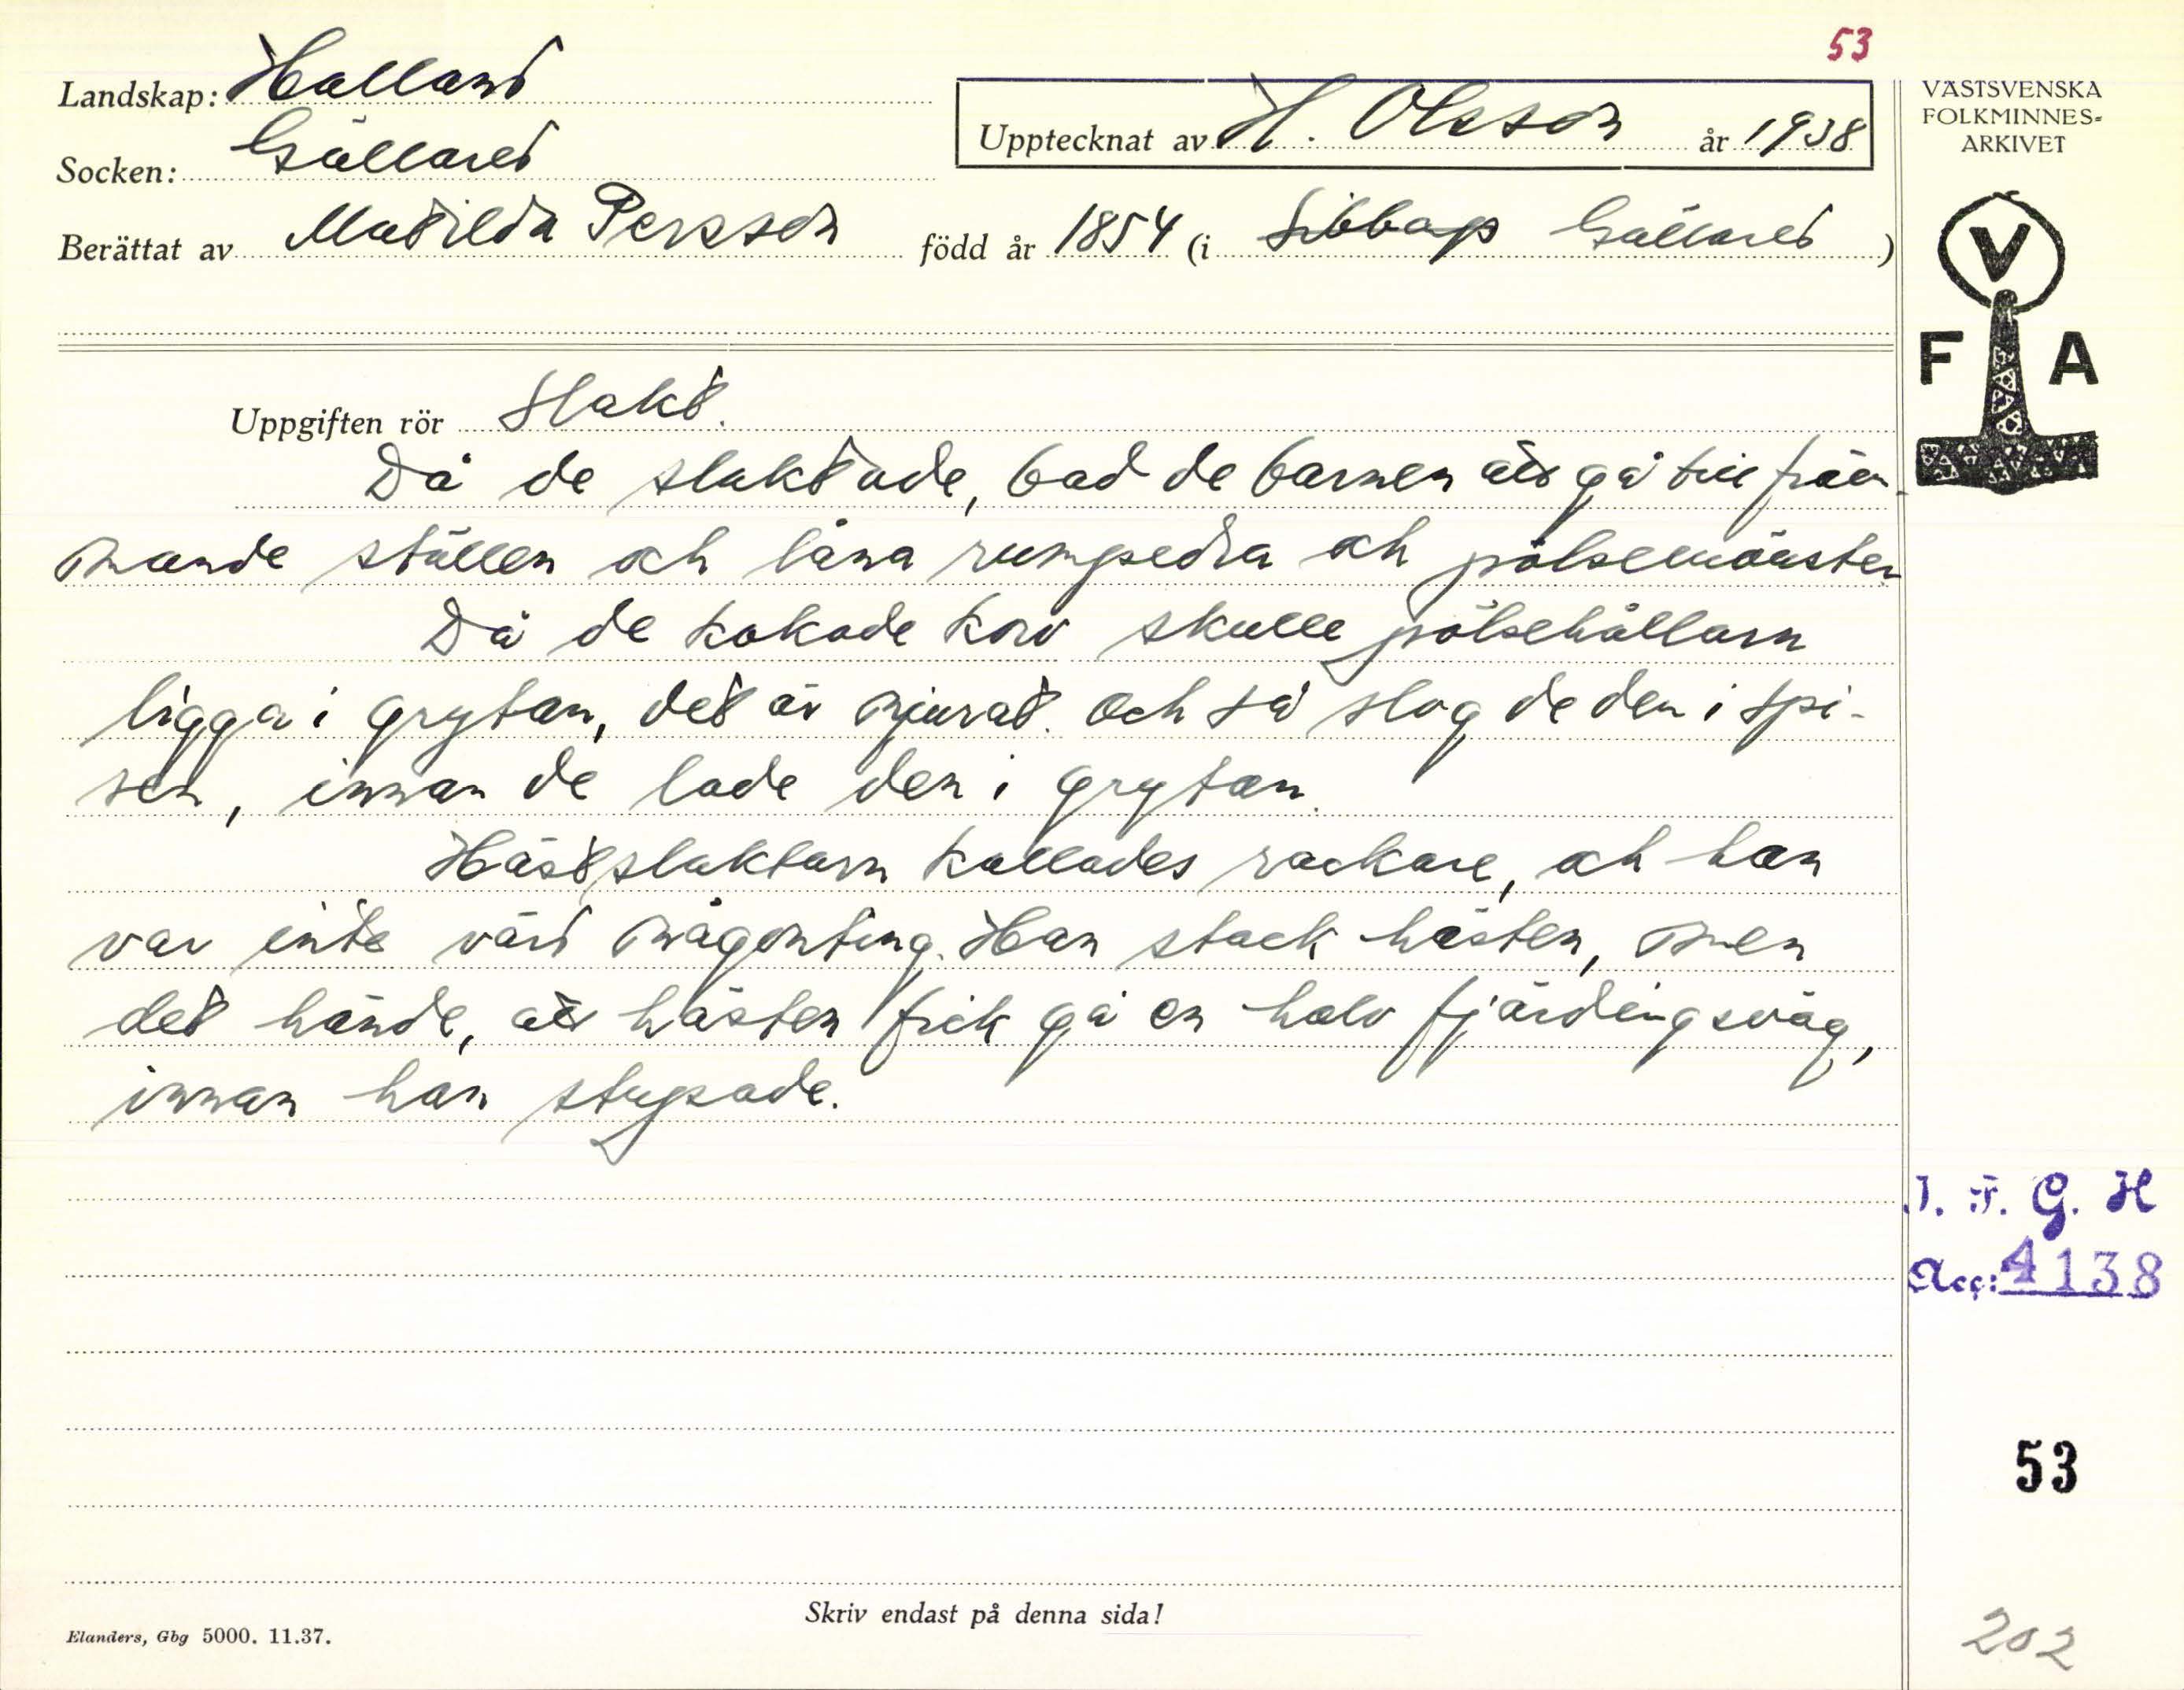 53
Landskap: Halland
Upptecknat av H. Olsson år 1938
VÄSTSVENSKA
FOLKMINNES=
ARKIVET
Socken: Gällared
Berättat av Matilda Persson född år 1854 (i Sibbap Gällared)
V
F A
Uppgiften rör Slakt.
Då de slaktade, bad de barnen att gå till främ-
mande ställen och låna rumpsedra och pölsemönster
Då de kokade korv skulle pölsehållarn
ligga i grytan, det är njurat. Och så slog de den i spi-
sen, innan de lade den i grytan.
Hästslaktarn kallades rackare, och han
var inte värd någonting. Han stack hästen, men
det hände, att hästen fick gå en halv fjärdingsväg,
innan han stupade.
I. F. G. H
Acc: 4138
53
Skriv endast på denna sida!
Elanders, Gbg 5000. 11.37.
202